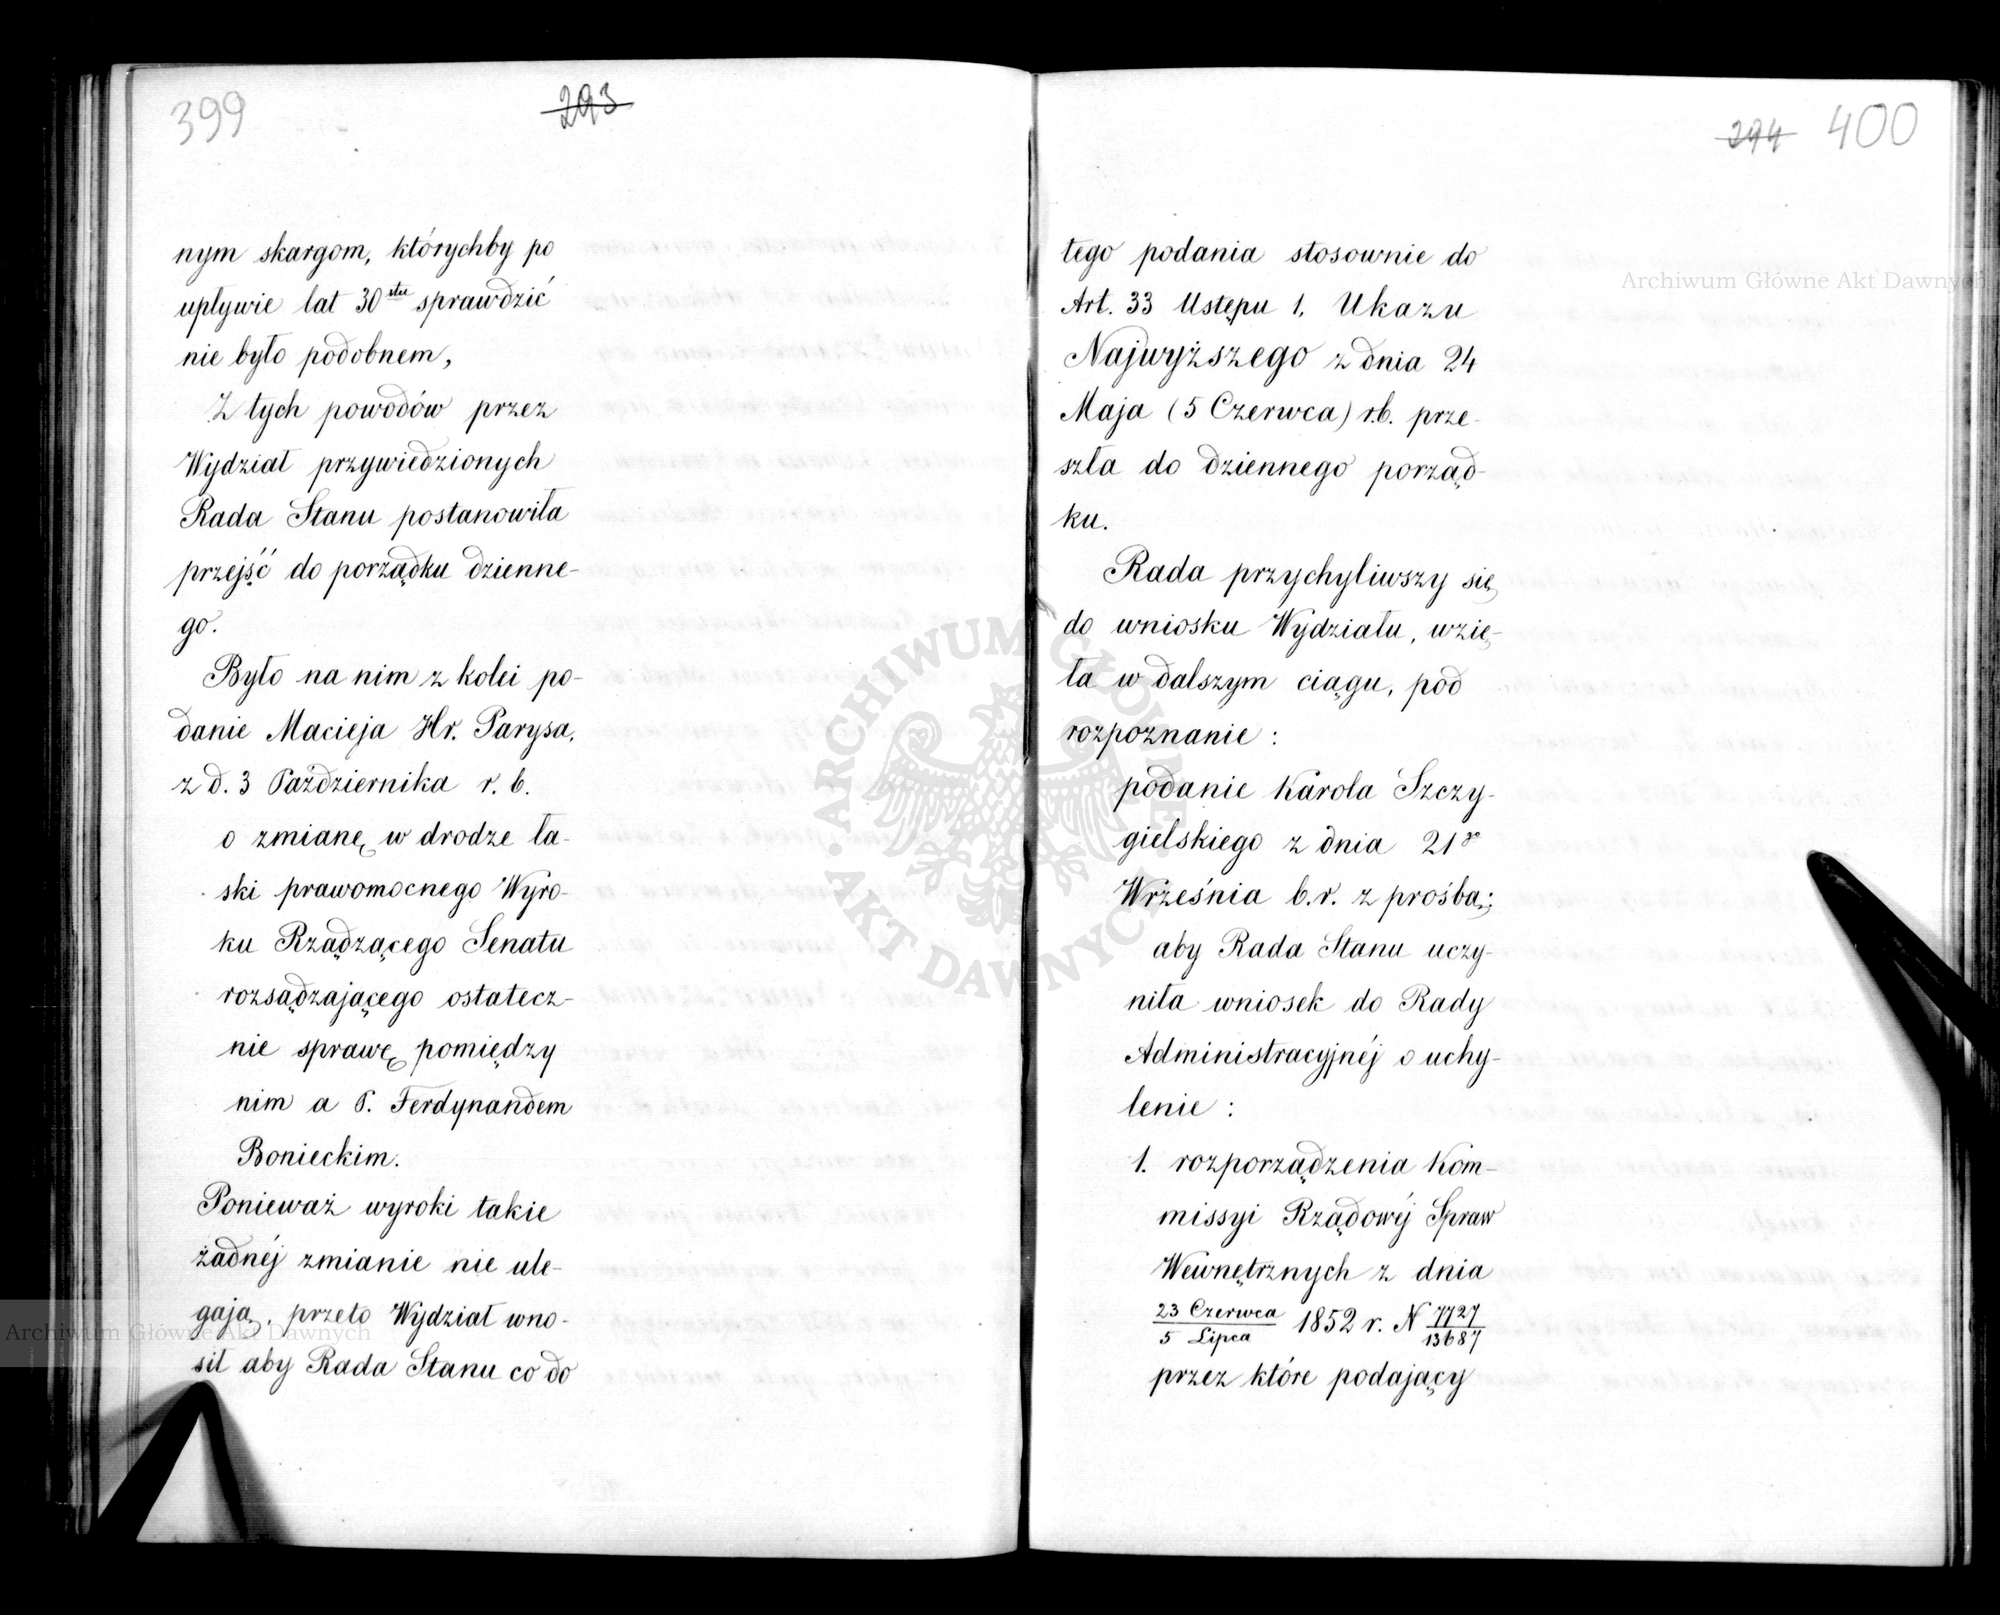 399
293
nym skargom, którychby po
upływie lat 30stu sprawdzić
nie było podobnem,
Z tych powodów przez
Wydział przywiedzionych
Rada Stanu postanowiła
przejść do porządku dzienne-
go.
Było na nim z kolei po-
danie Macieja Hr. Parysa,
z d. 3 Października r. b.
o zmianę w drodze ła-
ski prawomocnego Wyro-
ku Rządzącego Senatu
rozsądzającego ostatecz-
nie sprawę pomiędzy
nim a P. Ferdynandem
Bonieckim.
Ponieważ wyroki takie
żadnéj zmianie nie ule-
gają, przeto Wydział wno-
sił aby Rada Stanu co do
294 400
tego podania stosownie do
Art. 33 Ustępu 1. Ukazu
Najwyższego z dnia 24
Maja (5 Czerwca) r.b. prze-
szła do dziennego porząd-
ku.
Rada przychyliwszy się
do wniosku Wydziału, wzię-
ła w dalszym ciągu, pod
rozpoznanie:
podanie Karola Szczy-
gielskiego z dnia 21go
Września b.r. z prośbą;
aby Rada Stanu uczy-
niła wniosek do Rady
Administracyjnéj o uchy-
lenie:
1. rozporządzenia Kom-
missyi Rządowéj Spraw
Wewnętrznych z dnia
23 Czerwca/5 Lipca 1852 r. N 7727/13687
przez które podający
Archiwum Główne Akt Dawnych
Archiwum Główne Akt Dawnych
ARCHIWUM GŁÓWNE AKT DAWNYCH